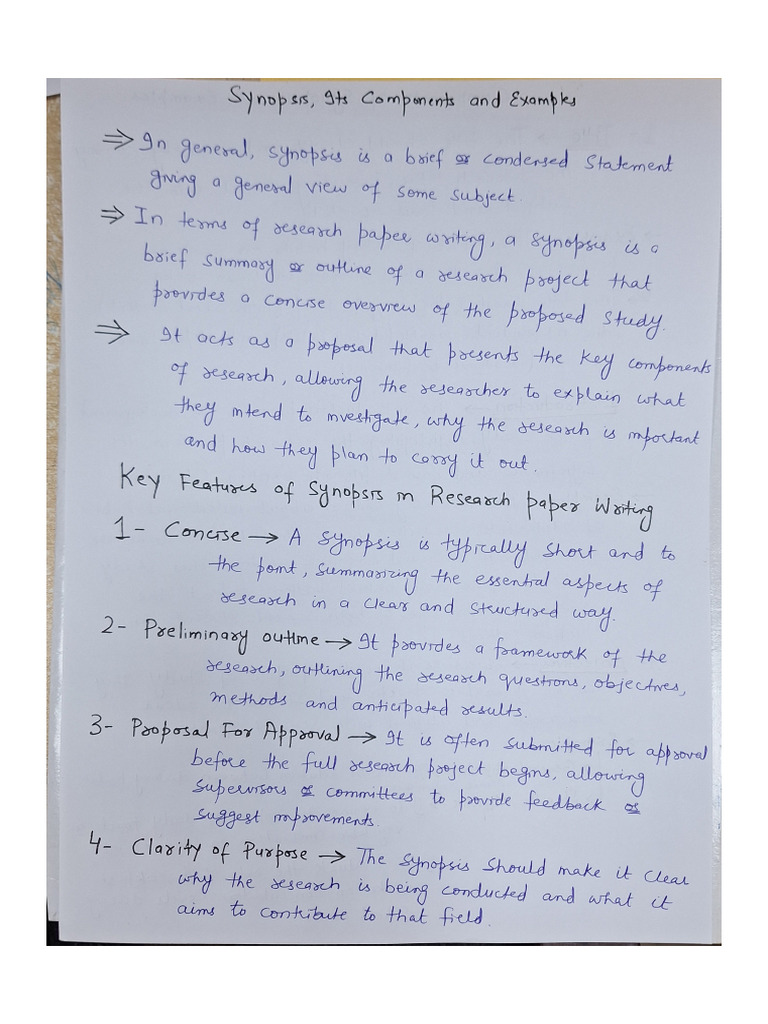 Synopsis, Its Components and Examples
⇒ In general, synopsis is a brief or condensed statement
giving a general view of some subject.
⇒ In terms of research paper writing, a synopsis is a
brief summary or outline of a research project that
provides a concise overview of the proposed study.
⇒ It acts as a proposal that presents the key components
of research, allowing the researcher to explain what
they intend to investigate, why the research is important
and how they plan to carry it out.
Key Features of Synopsis in Research paper Writing
1- Concise → A synopsis is typically short and to
the point, summarizing the essential aspects of
research in a clear and structured way.
2- Preliminary outline → It provides a framework of the
research, outlining the research questions, objectives,
methods and anticipated results.
3- Proposal For Approval → It is often submitted for approval
before the full research project begins, allowing
supervisors or committees to provide feedback or
suggest improvements.
4- Clarity of Purpose → The synopsis should make it clear
why the research is being conducted and what it
aims to contribute to that field.